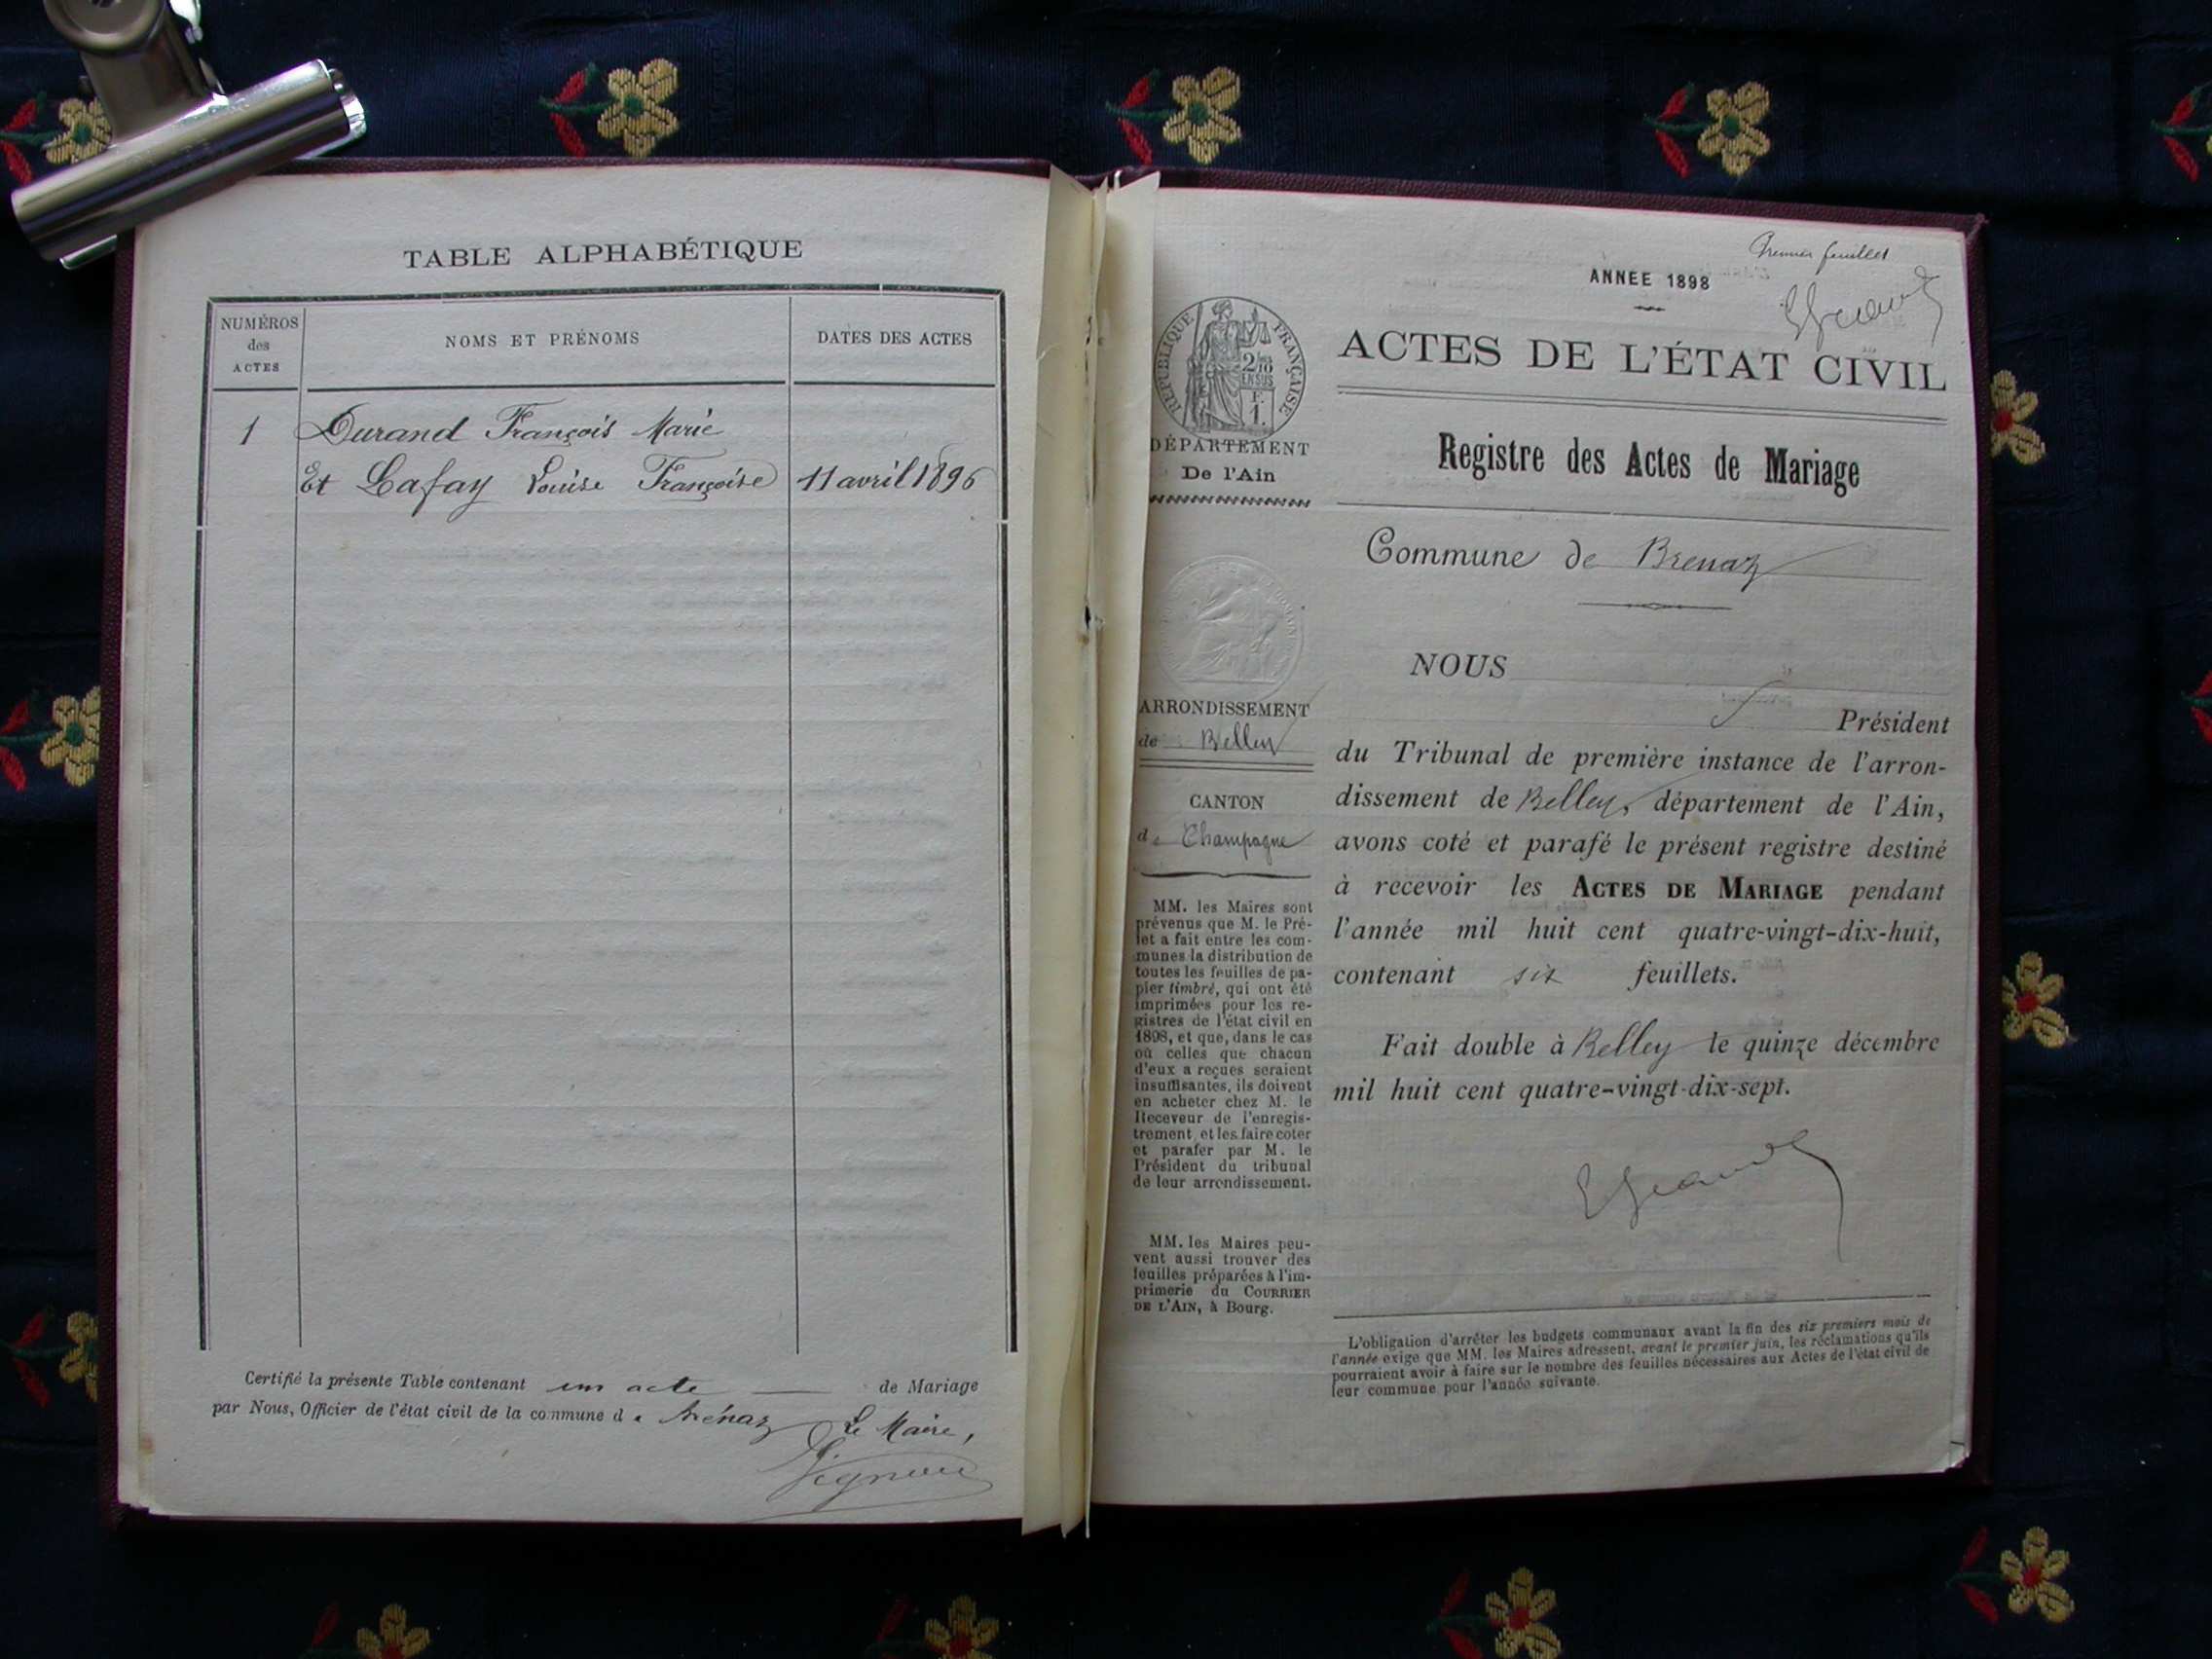 TABLE ALPHABÉTIQUE
NUMÉROS
des
ACTES
NOMS ET PRÉNOMS
DATES DES ACTES
1 Durand François Marie
Et Lafay Louise Françoise 11 avril 1896
Certifié la présente Table contenant un acte de Mariage
par Nous, Officier de l'état civil de la commune de Brénaz Le Maire,
Premier feuillet
ANNEE 1898
ACTES DE L'ÉTAT CIVIL
Registre des Actes de Mariage
Commune de Brenaz
RÉPUBLIQUE FRANÇAISE
2/10
EN SUS
F.
1.
DÉPARTEMENT
De l'Ain
ARRONDISSEMENT
de Belley
CANTON
de Champagne
MM. les Maires sont
prévenus que M. le Pré-
fet a fait entre les com-
munes la distribution de
toutes les feuilles de pa-
pier timbré, qui ont été
imprimées pour les re-
gistres de l'état civil en
1898, et que, dans le cas
où celles que chacun
d'eux a reçues seraient
insuffisantes, ils doivent
en acheter chez M. le
Receveur de l'enregis-
trement, et les faire coter
et parafer par M. le
Président du tribunal
de leur arrondissement.
MM. les Maires peu-
vent aussi trouver des
feuilles préparées à l'im-
primerie du COURRIER
DE L'AIN, à Bourg.
NOUS
Président
du Tribunal de première instance de l'arron-
dissement de Belley, département de l'Ain,
avons coté et parafé le présent registre destiné
à recevoir les ACTES DE MARIAGE pendant
l'année mil huit cent quatre-vingt-dix-huit,
contenant six feuillets.
Fait double à Belley le quinze décembre
mil huit cent quatre-vingt-dix-sept.
L'obligation d'arrêter les budgets communaux avant la fin des six premiers mois de
l'année exige que MM. les Maires adressent, avant le premier juin, les réclamations qu'ils
pourraient avoir à faire sur le nombre des feuilles nécessaires aux Actes de l'état civil de
leur commune pour l'année suivante.